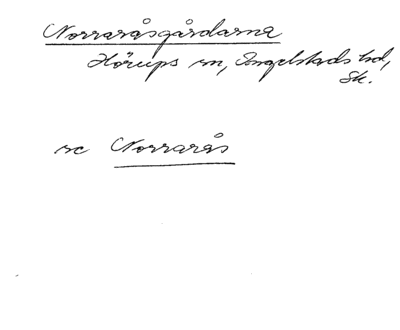 Norraråsgårdarna
Hörups sn, Ingelstads hd,
Sk.
se Norrarås